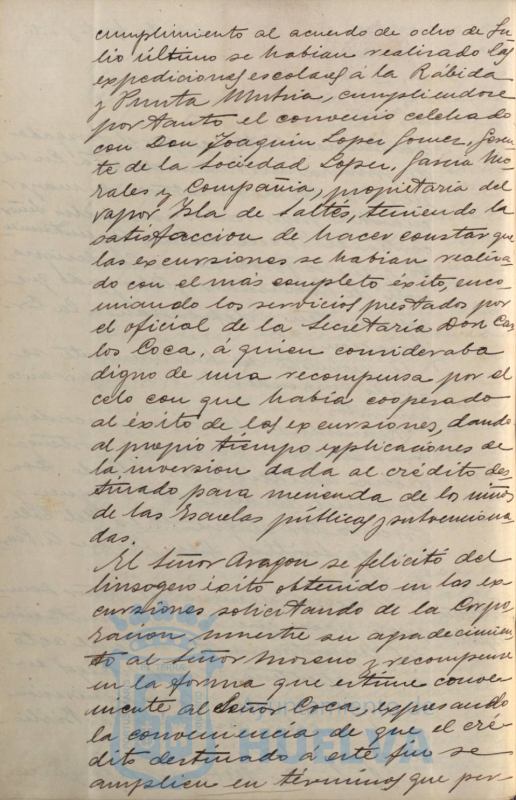 cumplimiento al acuerdo de ocho de Ju-
lio último se habian realizado las
expediciones escolares á la Rábida
y Punta Umbria, cumpliendose
por tanto el convenio celebrado
con Don Joaquin Lopez Gomez, Geren-
te de la Sociedad Lopez, Garcia Mo-
rales y Compañia, propietaria del
vapor Isla de Saltés, teniendo la
satisfaccion de hacer constar que
las excursiones se habian realiza-
do con el más completo éxito, enco-
miando los servicios prestados por
el oficial de la Secretaria Don Car-
los Coca, á quien consideraba
digno de una recompensa por el
celo con que habia cooperado
al éxito de las excursiones, dando
al propio tiempo explicaciones de
la inversion dada al crédito des-
tinado para merienda de lo niños
de las Escuelas públicas y subvenciona-
das.
El Señor Aragon se felicitó del
linsogero éxito obtenido en las ex-
cursiones solicitando de la Corpo-
racion muestre su agradecimien-
to al Señor Moreno y recompense
en la forma que estime conve-
niente al Señor Coca, expresando
la conveniencia de que el cré-
dito destinado á este fin se
amplien en términos que per-
Ayuntamiento de
HUELVA